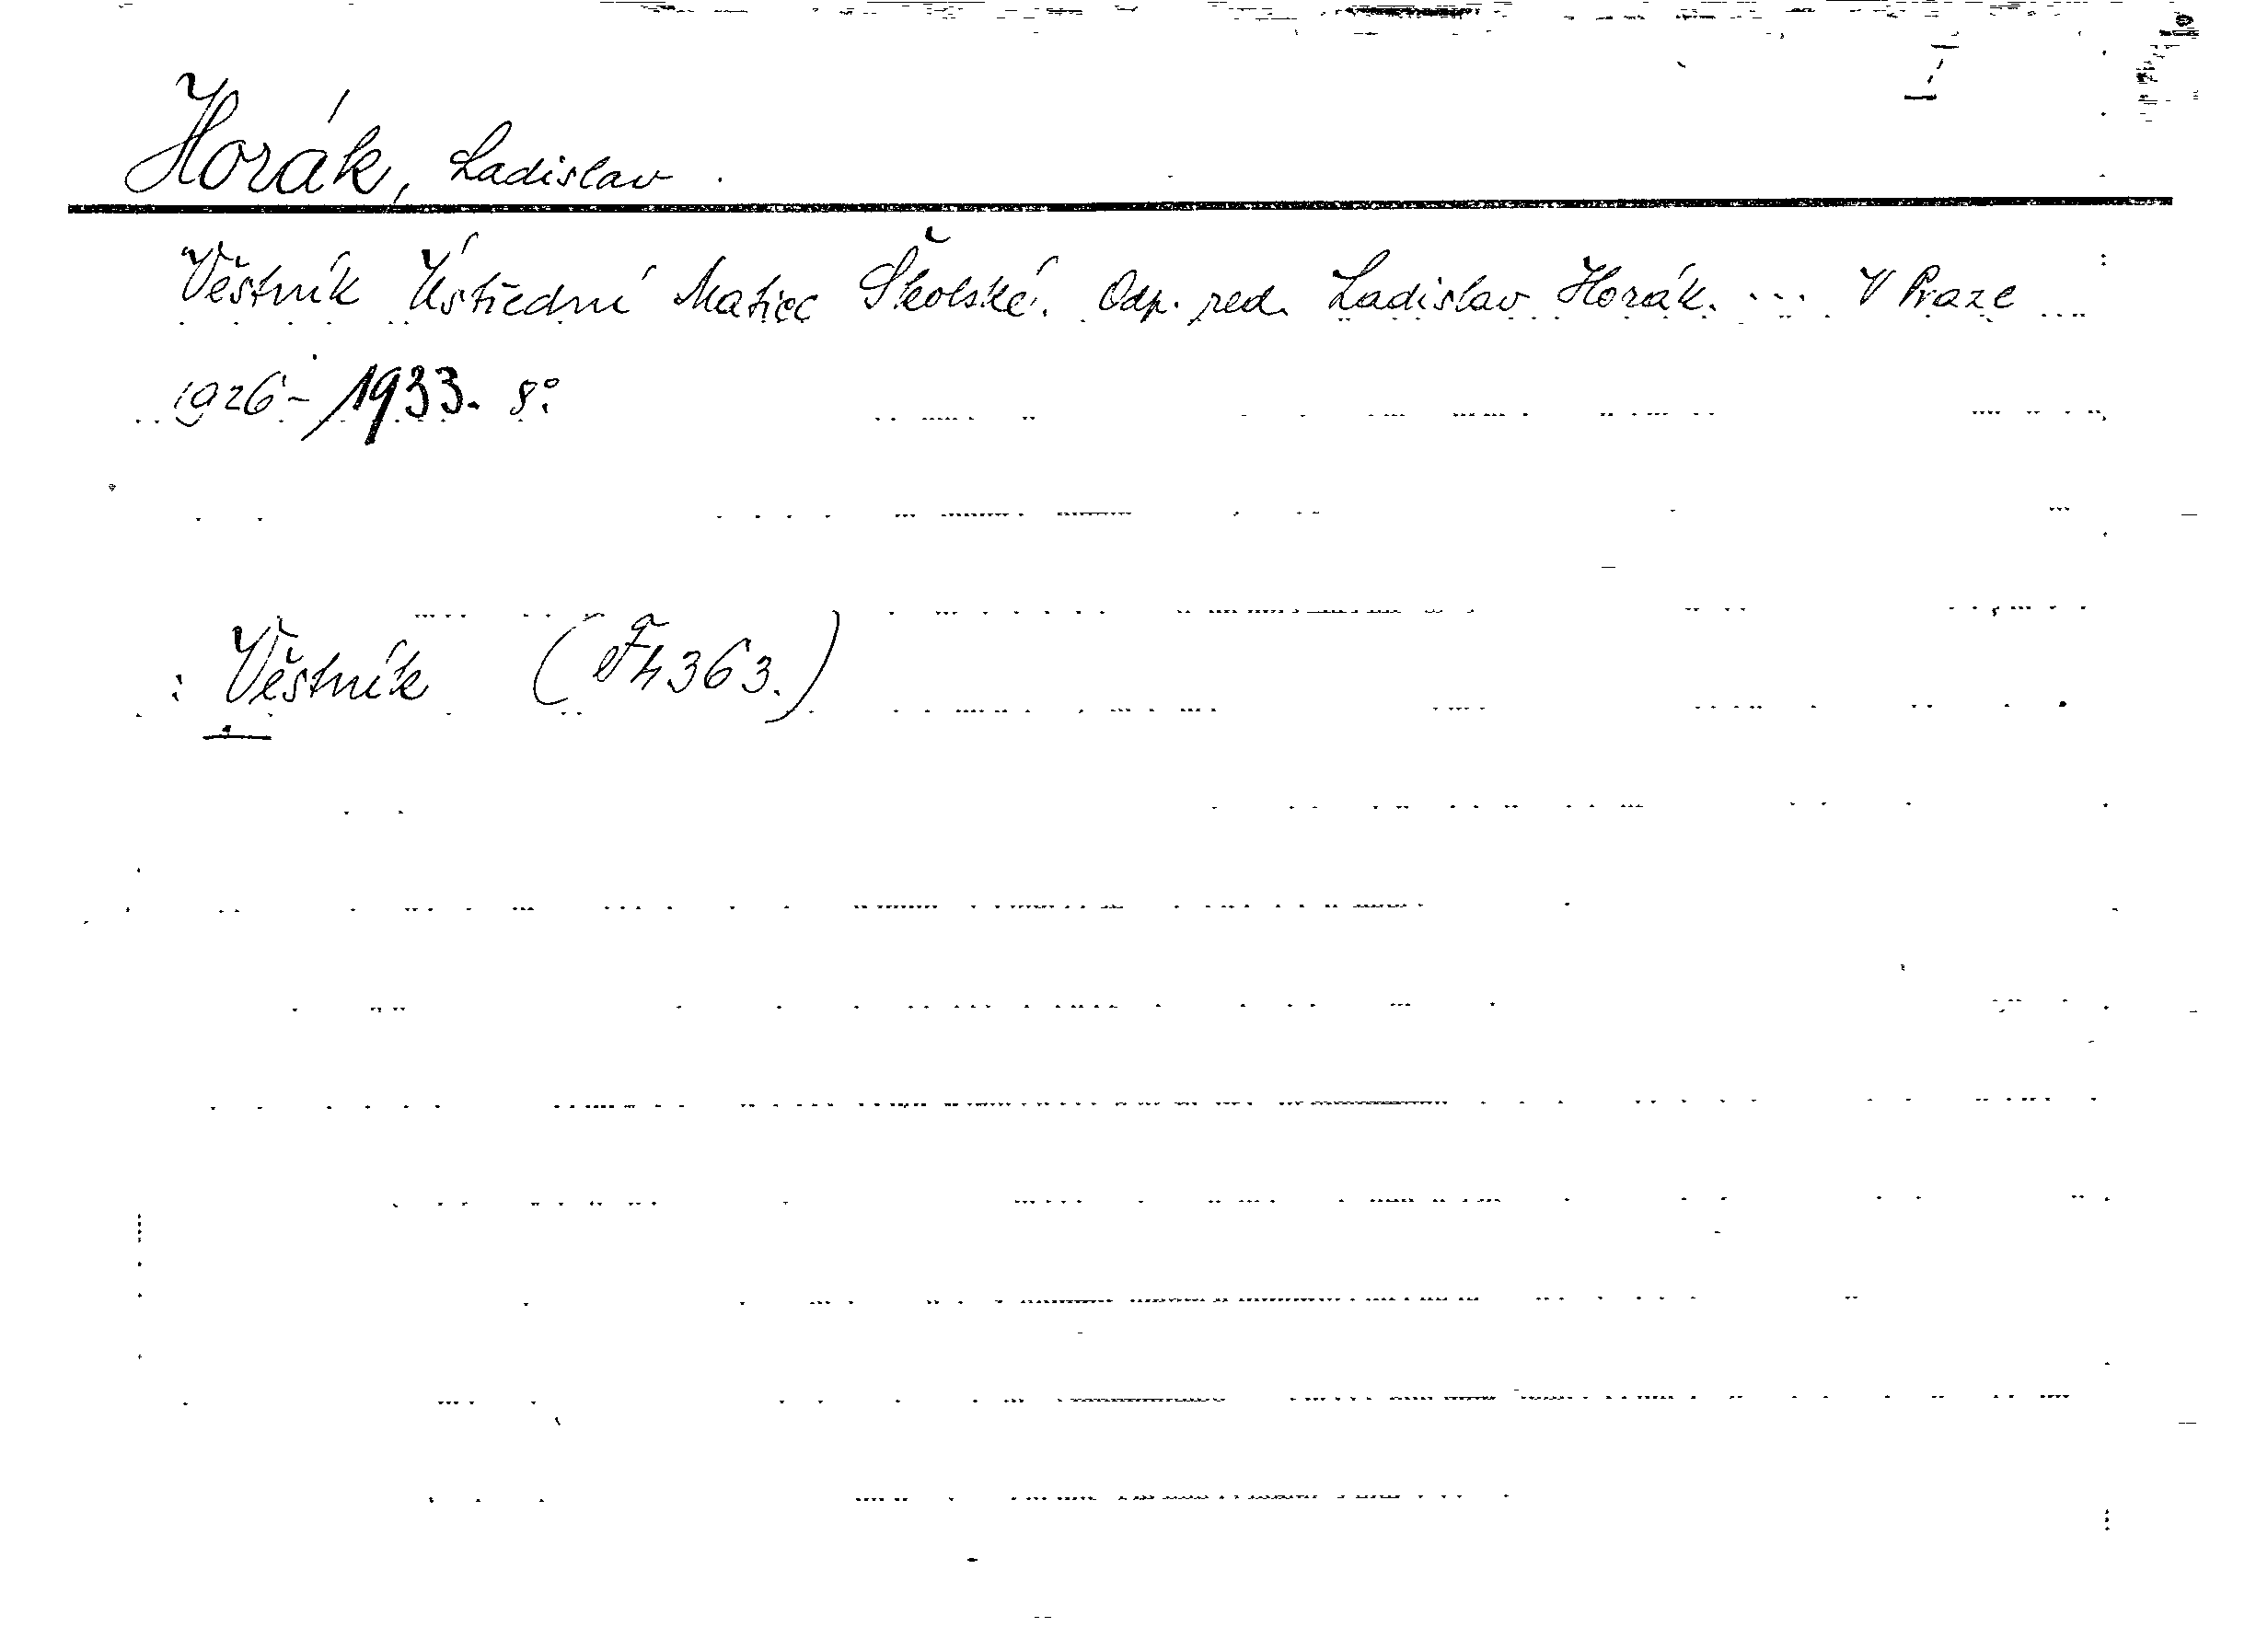 Horák, Ladislav.
Věstník Ústřední Matice Školské. Odp. red. Ladislav Horák. ... V Praze
1926-1933. 8°.
: Věstník (F4363.)